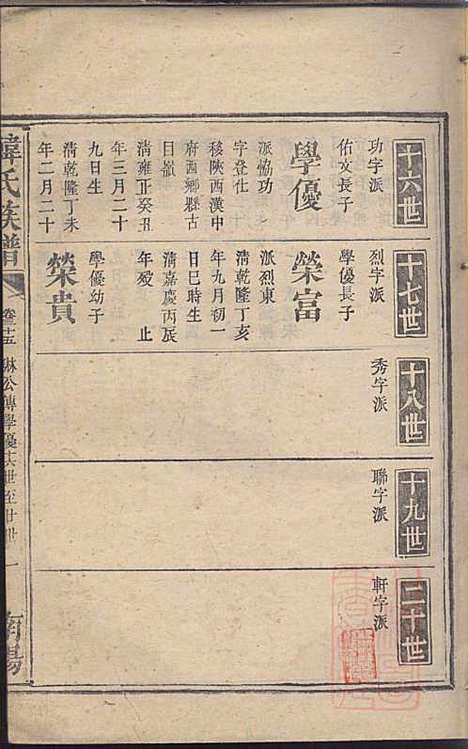 十六世
功字派
佑文長子
學優
派恊功
字登仕
移陝西漢中
府西鄉縣古
日嶺
清雍正癸丑
年三月二十
九日生
清乾隆丁未
年二月二十
十七世
烈字派
學優長子
榮富
派烈東
清乾隆丁亥
年九月初一
日巳時生
清嘉慶丙辰
年歿 止
學優幼子
榮貴
十八世
秀字派
十九世
聯字派
二十世
軒字派
韓氏族譜
卷十五 琳公傳學優十六世至廿世 一
南陽